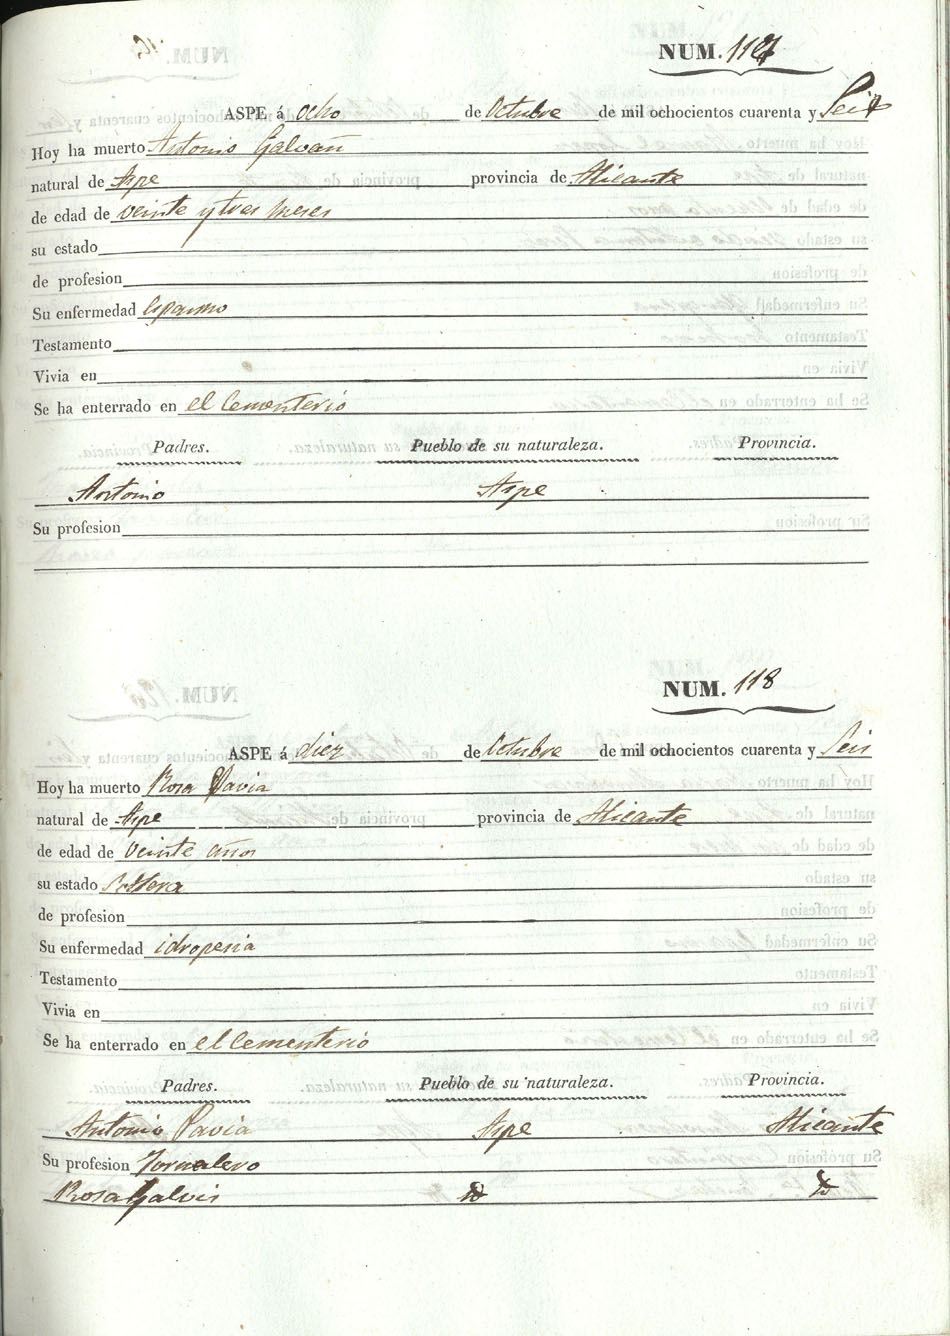 NUM. 117
ASPE á ocho de Octubre de mil ochocientos cuarenta y Seis
Hoy ha muerto Antonio Galvañ
natural de Aspe provincia de Alicante
de edad de veinte y tres meses
su estado
de profesion
Su enfermedad espasmo
Testamento
Vivia en
Se ha enterrado en el Cementerio
Padres. Pueblo de su naturaleza. Provincia.
Antonio Aspe
Su profesion
NUM. 118
ASPE á diez de Octubre de mil ochocientos cuarenta y Seis
Hoy ha muerto Rosa Pavia
natural de Aspe provincia de Alicante
de edad de veinte años
su estado Soltera
de profesion
Su enfermedad idropesia
Testamento
Vivia en
Se ha enterrado en el Cementerio
Padres. Pueblo de su naturaleza. Provincia.
Antonio Pavia Aspe Alicante
Su profesion Jornalero
Rosa Galvis